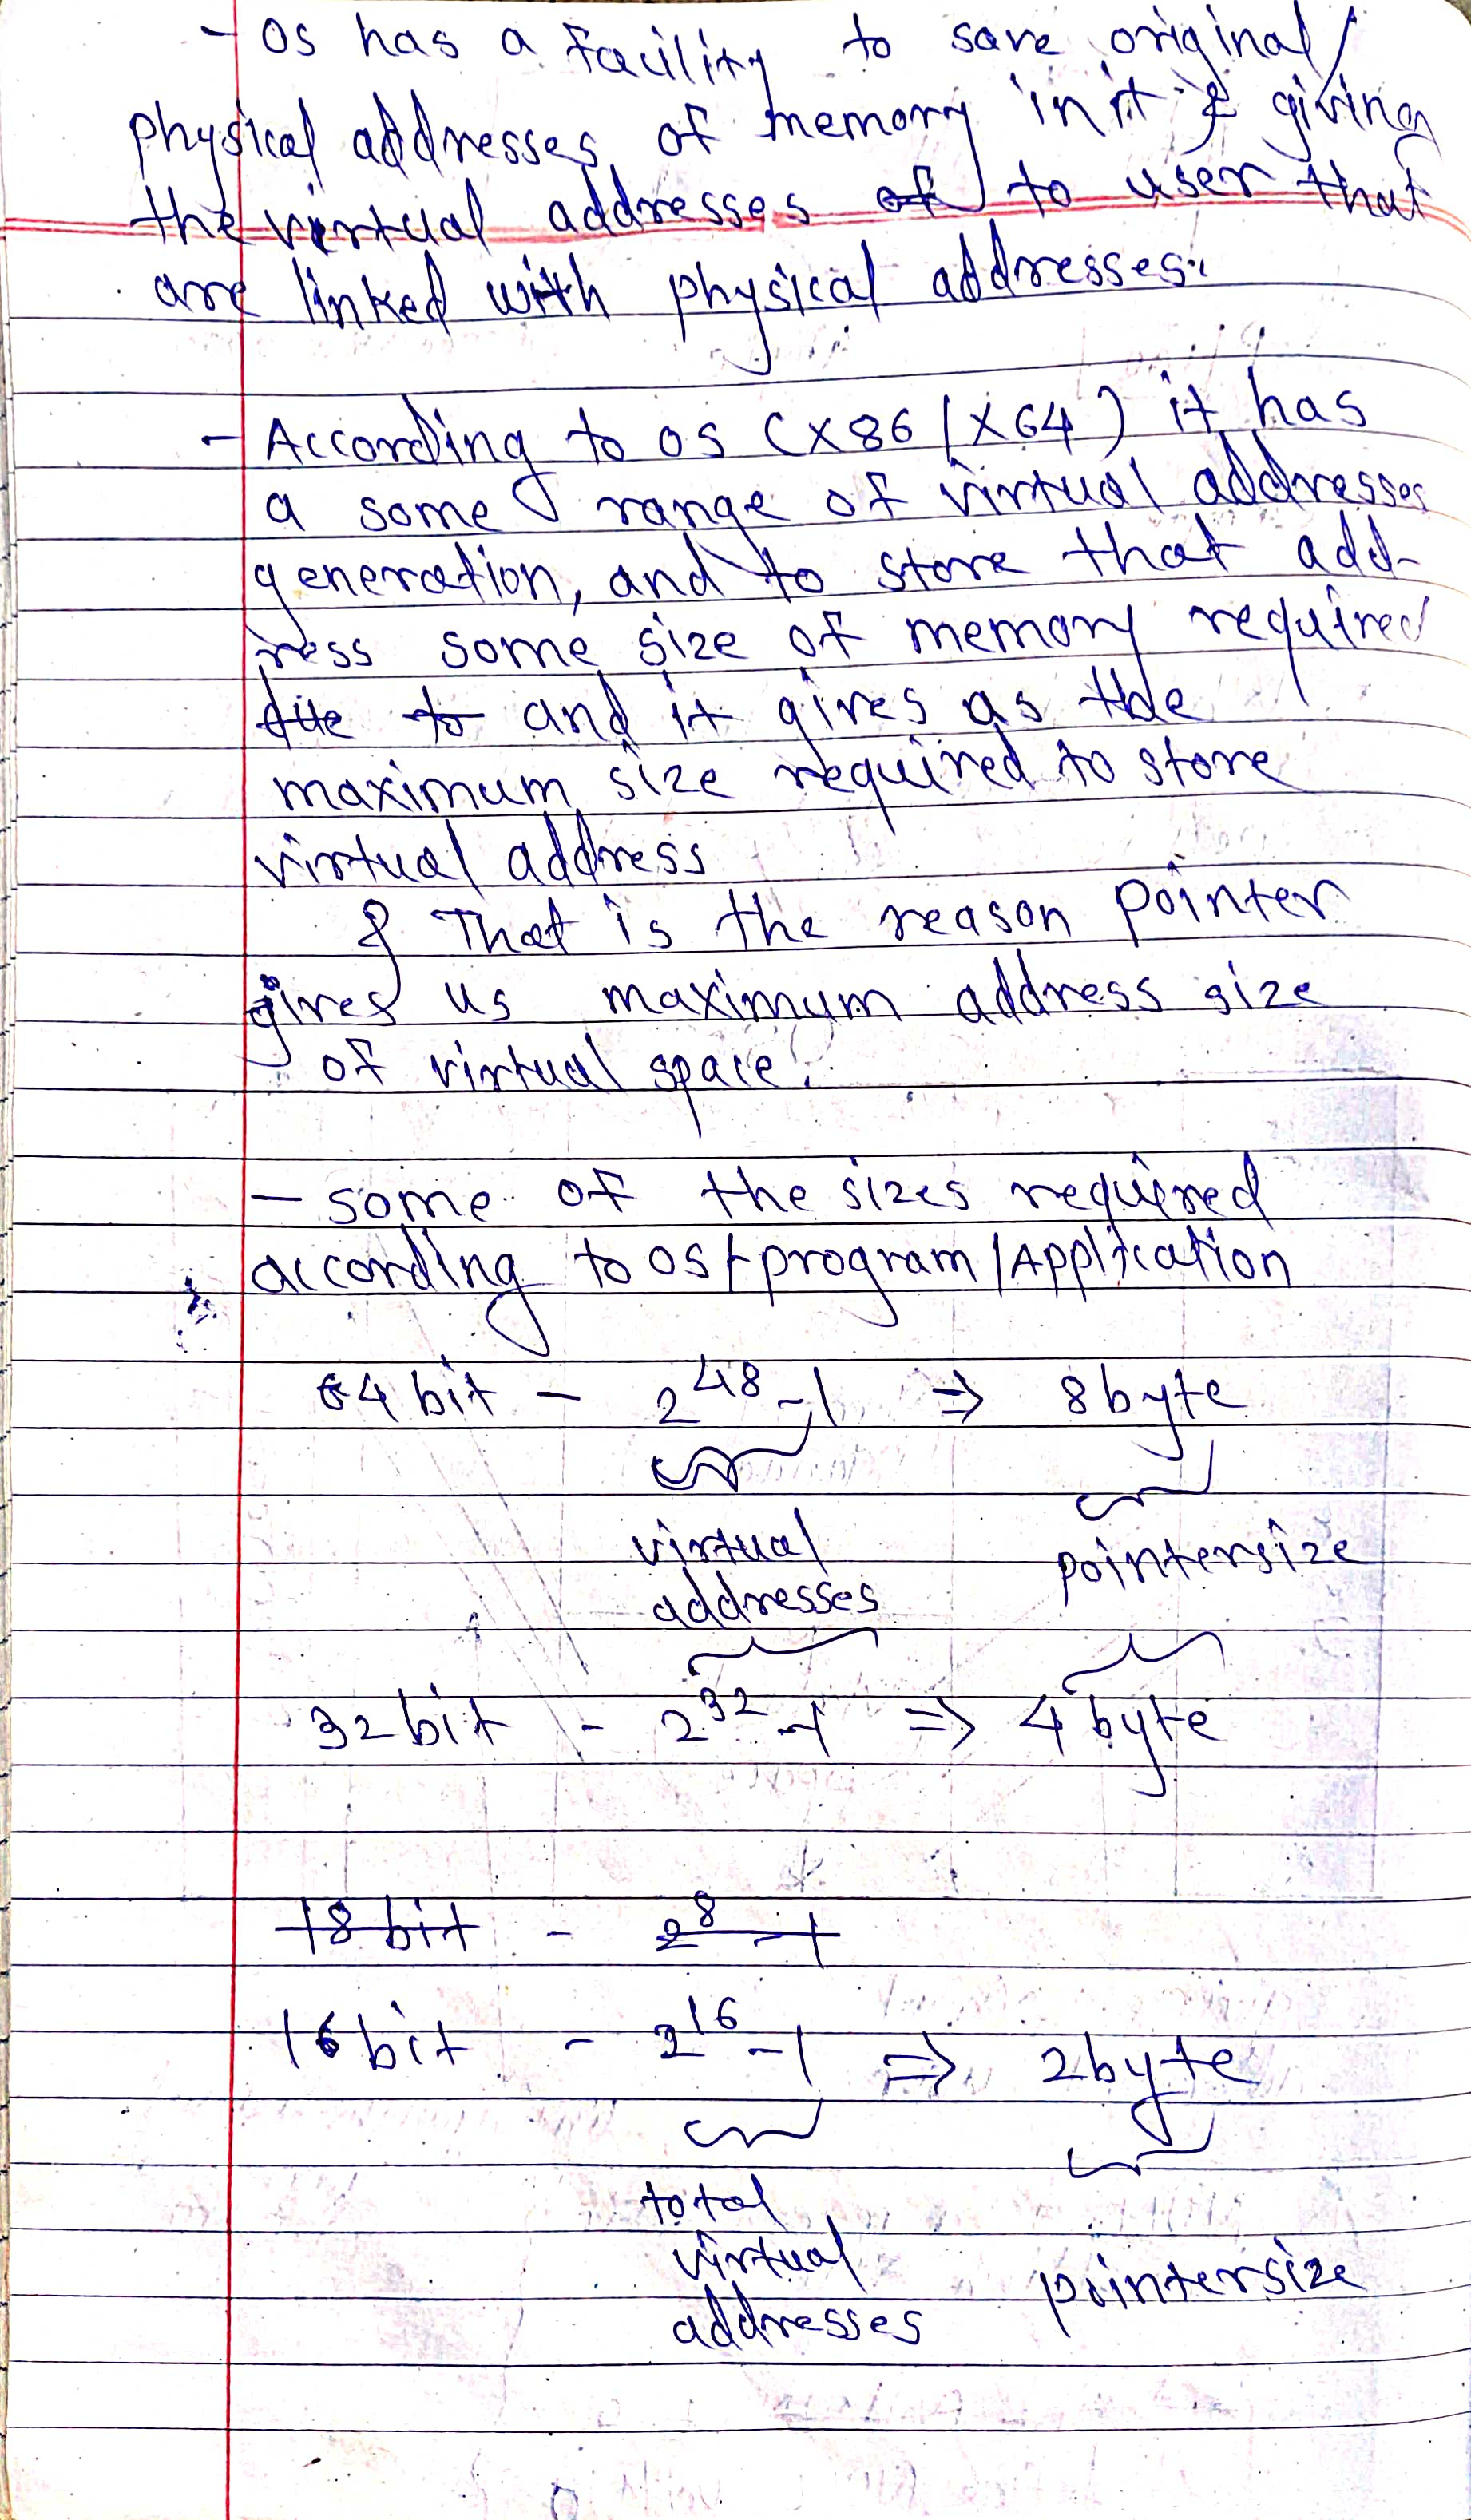 - OS has a facility to save original/
physical addresses of memory in it & giving
the virtual addresses of to user that
are linked with physical addresses.
- According to OS (X86/X64) it has
a some range of virtual addresses
generation, and to store that add-
ress some size of memory required
due to and it gives as the
maximum size required to store
virtual address
& That is the reason pointer
gives us maximum address size
of virtual space.
- some of the sizes required
according to OS/program/Application
64 bit - 2^48 - 1 => 8 byte
virtual pointersize
addresses
32 bit - 2^32 - 1 => 4 byte
18 bit - 2^8 - 1
16 bit - 2^16 - 1 => 2 byte
total
virtual pointersize
addresses